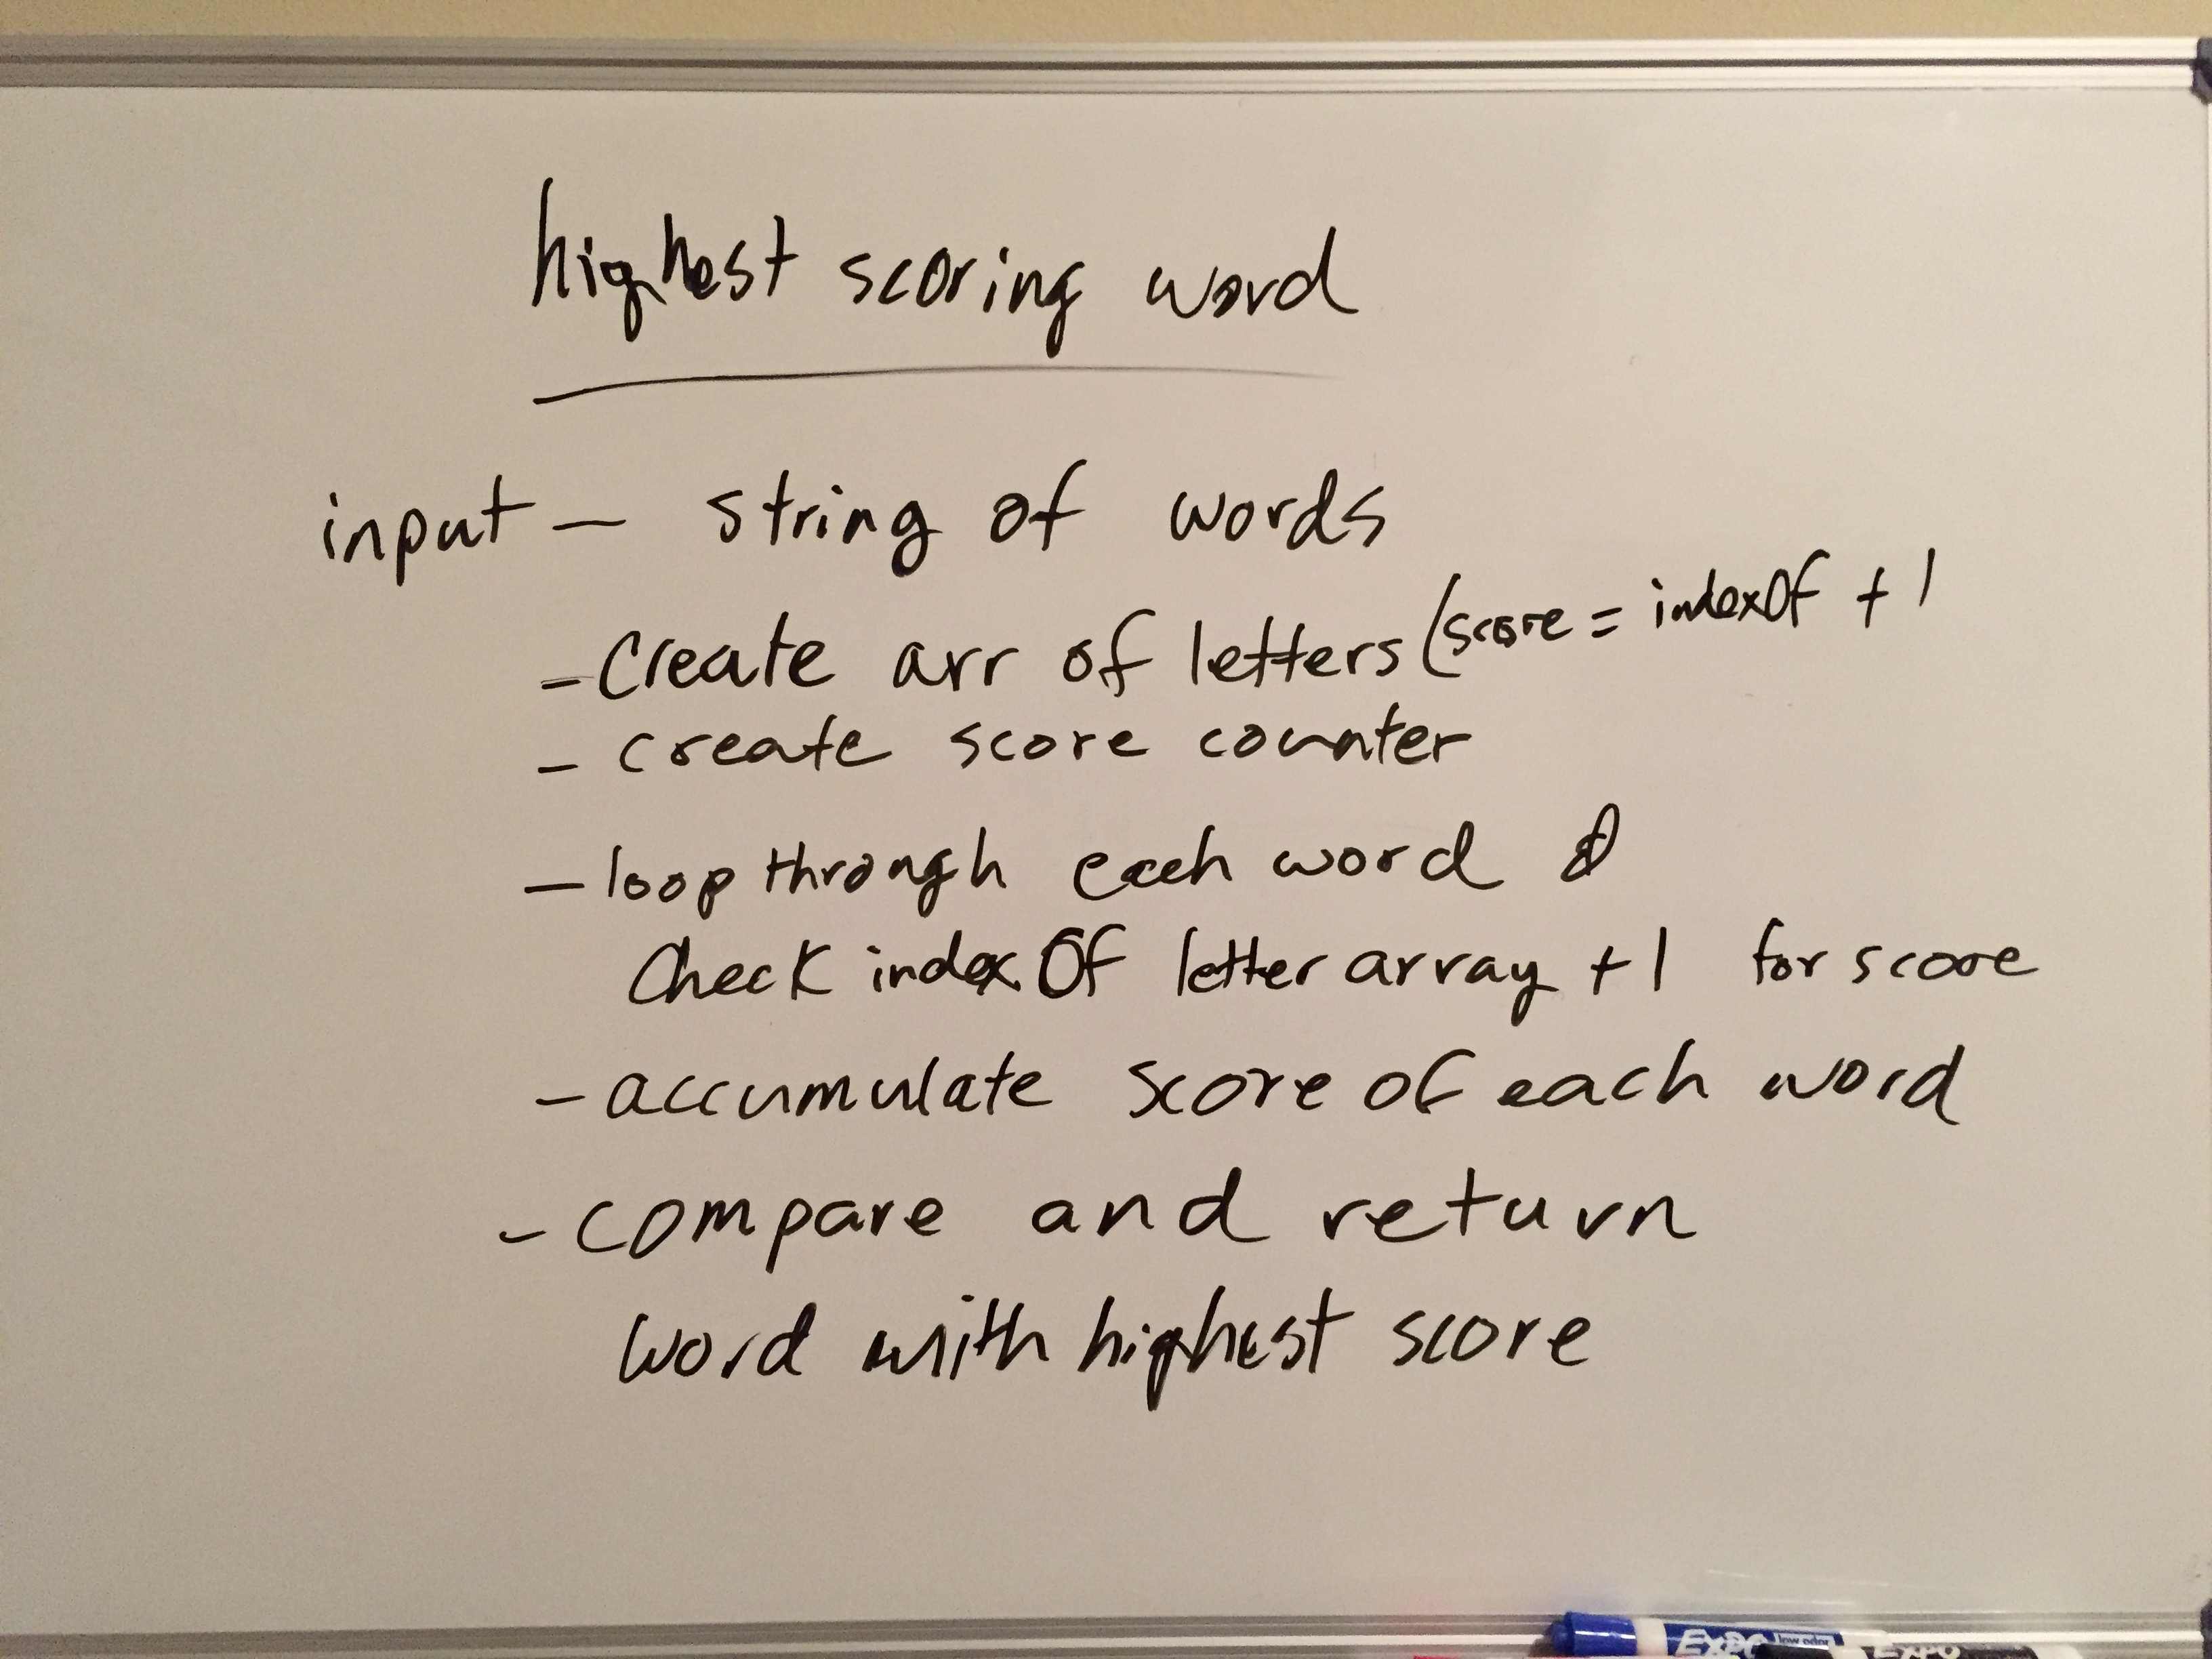 highest scoring word
input — string of words
- Create arr of letters (score = indexOf + 1
- create score counter
- loop through each word &
Check indexOf letter array +1 for score
- accumulate score of each word
- compare and return
word with highest score
EXPO low odor EXPO